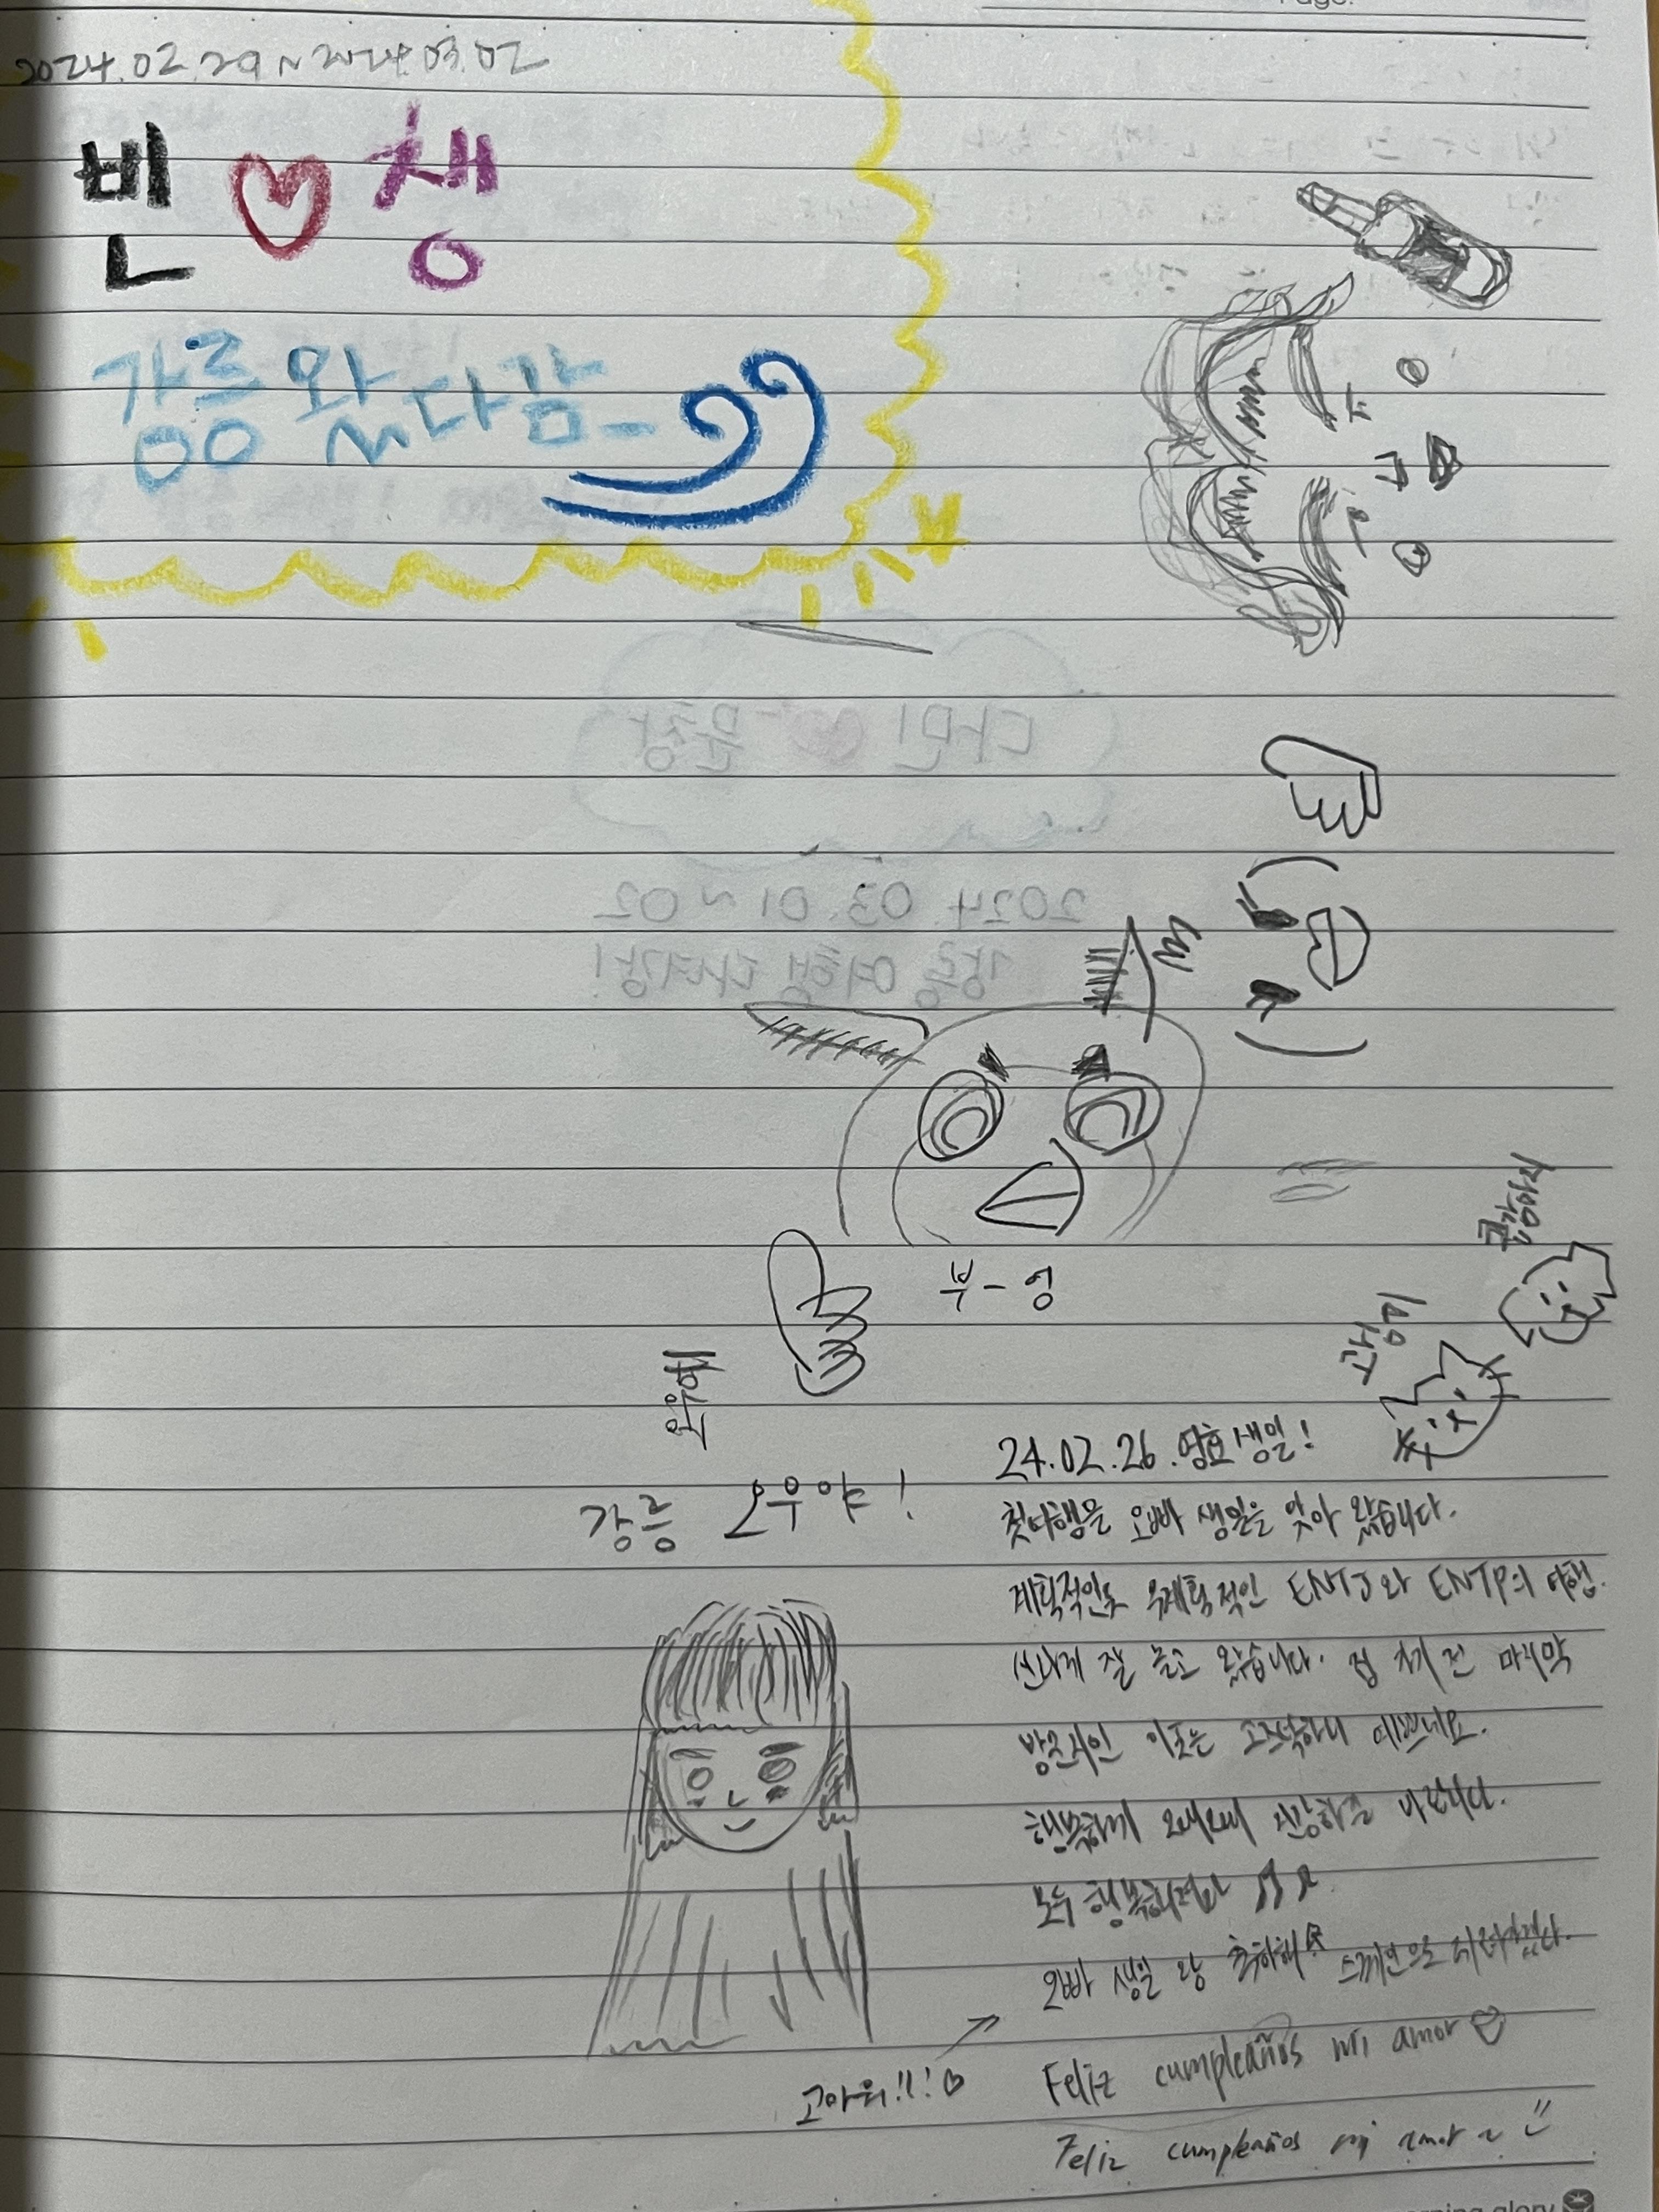 Page.
2024.02.29 ~ 2024.03.02
빈 ♡ 챙
강릉 왔다감-
부-엉
곰강아지
고양이
강릉 오우야!
24.02.26. 영효생일!
첫여행을 오빠 생일을 맞아 왔습니다.
계획적인듯 무계획적인 ENTJ와 ENTP의 여행.
신나게 잘 놀고 왔습니다. 집 가기 전 마지막
방문지인 이곳은 고즈넉하니 예쁘네요.
행복하게 오래오래 건강하길 바랍니다.
모두 행복하여라 ♫♪
오빠 생일 축하해☆ 스페인으로 데려가겠다.
고마워!!! ♡
Feliz cumpleaños mi amor ♡
Feliz cumpleaños mi amor ~
morning glory